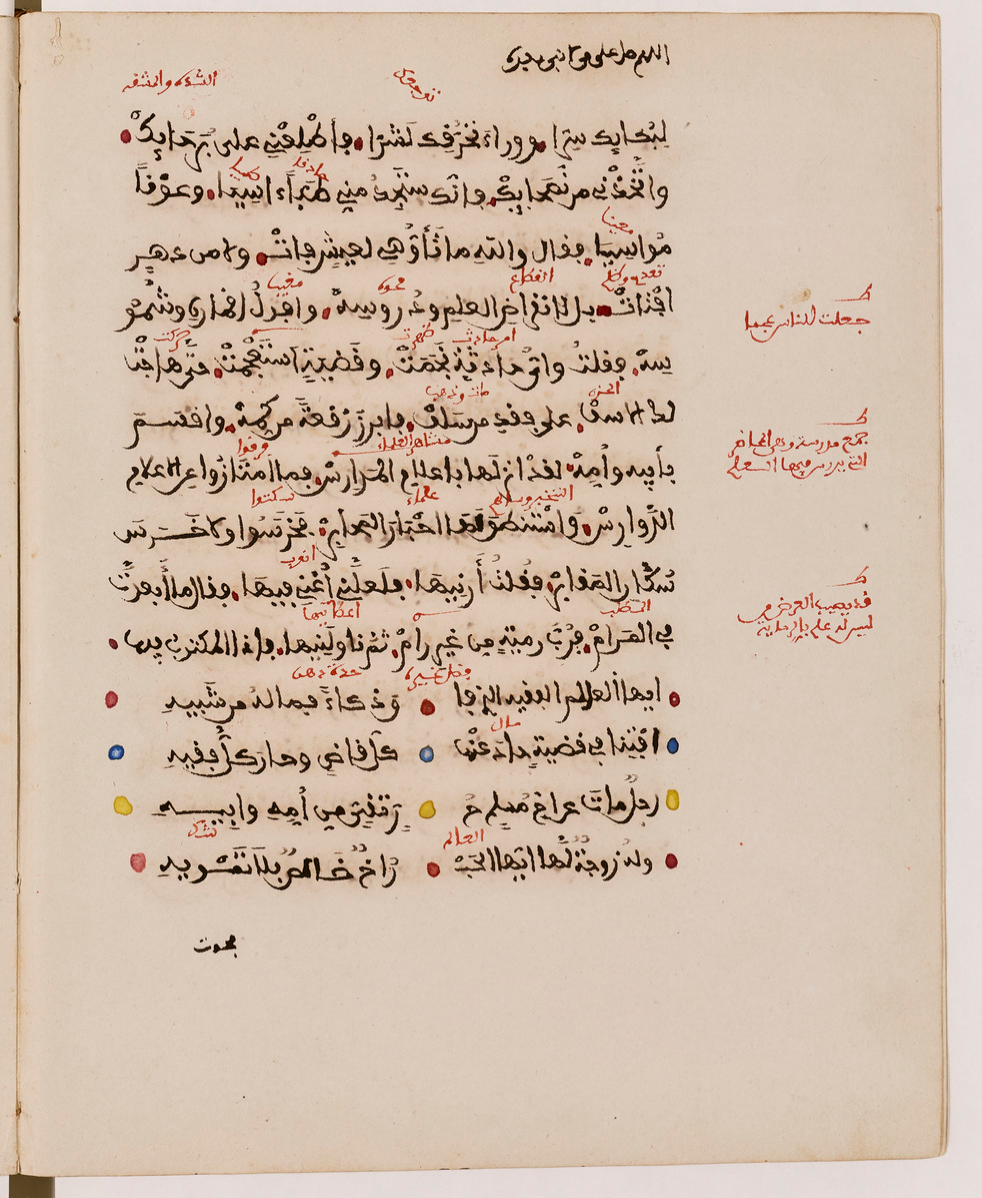 اللهم صل على من لا نبي بعده
الشدة والمشقة
لبكايك سرا ووراء تحرقك لشرا فأطلعني على برحايك
واتخذني من نصحايك فانك ستجد مني طبا اسيا وعونا
مواسيا فقال والله ما تأوهي لعيش فات ولا من دهر
افتات بل لانقراض العلم ودروسه وافول اقماره وشمو
سه فقلت واي حادثة نجمت وقضية استعجمت حتى هاجت
لك الاسف على فقد من سلف فابرز رقعة من كمه واقسم
بأبيه وأمه لقد انزلها باعلام المدارس فما امتازوا عن الاعلام
الدوارس واستنطق لها احبار المحابر فخرسوا ولا خرس
سكان المقابر فقلت أرنيها فلعلني أغني فيها فقال ما أبعدت
في المرام فرب رمية من غير رام ثم ناولنيها فاذا المكتوب فيها
ايها العالم الفقيه الذي فا ق ذكاء فما له من شبيه
افتنا في قضية حاد عنها كل قاض وحار كل فقيه
رجل مات عن اخ مسلم حر تقي من أمه وابيه
وله زوجة لها ايها الحبر اخ خالص بلا تمويه
جعلت للناس عجما
جمع مدرسة وهي المحاضر
التي يدرس فيها العلم
قد يصيب الغرض من
ليس له علم بالرماية